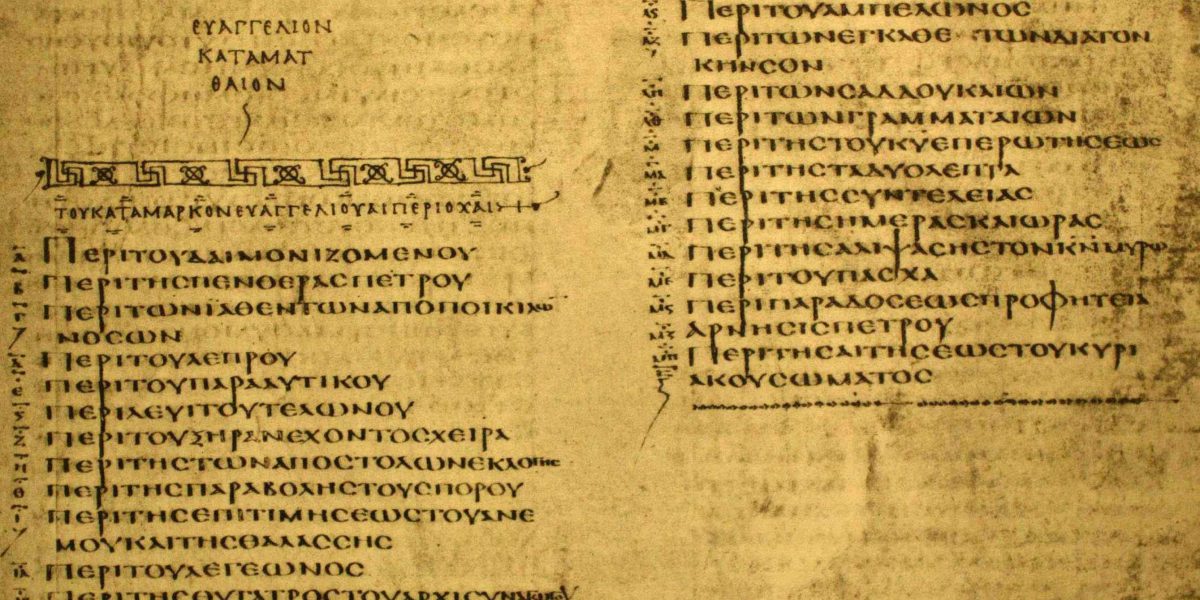 ΕΥΑΓΓΕΛΙΟΝ
ΚΑΤΑΜΑΤ
ΘΑΙΟΝ
ΤΟΥΚΑΤΑΜΑΡΚΟΝΕΥΑΓΓΕΛΙΟΥΑΙΠΕΡΙΟΧΑΙ
Α ΠΕΡΙΤΟΥΔΑΙΜΟΝΙΖΟΜΕΝΟΥ
Β ΠΕΡΙΤΗΣΠΕΝΘΕΡΑΣΠΕΤΡΟΥ
ΠΕΡΙΤΩΝΙΑΘΕΝΤΩΝΑΠΟΠΟΙΚΙΛΩ
ΝΟΣΩΝ
Δ ΠΕΡΙΤΟΥΛΕΠΡΟΥ
Ε ΠΕΡΙΤΟΥΠΑΡΑΛΥΤΙΚΟΥ
ΠΕΡΙΛΕΥΙΤΟΥΤΕΛΩΝΟΥ
Ζ ΠΕΡΙΤΟΥΞΗΡΑΝΕΧΟΝΤΟΣΧΕΙΡΑ
Η ΠΕΡΙΤΗΣΤΩΝΑΠΟΣΤΟΛΩΝΕΚΛΟΓΗΣ
Θ ΠΕΡΙΤΗΣΠΑΡΑΒΟΛΗΣΤΟΥΣΠΟΡΟΥ
Ι ΠΕΡΙΤΗΣΕΠΙΤΙΜΗΣΕΩΣΤΟΥΑΝΕ
ΜΟΥΚΑΙΤΗΣΘΑΛΑΣΣΗΣ
ΙΑ ΠΕΡΙΤΟΥΛΕΓΕΩΝΟΣ
ΠΕΡΙΤΗΣΘΥΓΑΤΡΟΣΤΟΥΑΡΧΙΣΥΝΑΓΩΓΟΥ
ΠΕΡΙΤΟΥΑΜΠΕΛΩΝΟΣ
ΠΕΡΙΤΩΝΕΓΚΑΘΕΤΩΝΔΙΑΤΟΝ
ΚΗΝΣΟΝ
ΛΗ ΠΕΡΙΤΩΝΣΑΔΔΟΥΚΑΙΩΝ
ΛΘ ΠΕΡΙΤΩΝΓΡΑΜΜΑΤΑΙΩΝ
Μ ΠΕΡΙΤΗΣΤΟΥΚΥΕΠΕΡΩΤΗΣΕΩΣ
ΜΑ ΠΕΡΙΤΗΣΤΑΔΥΟΛΕΠΤΑ
ΜΒ ΠΕΡΙΤΗΣΣΥΝΤΕΛΕΙΑΣ
ΜΓ ΠΕΡΙΤΗΣΗΜΕΡΑΣΚΑΙΩΡΑΣ
ΜΔ ΠΕΡΙΤΗΣΑΛΙΨΑΣΗΣΤΟΝΚΝΜΥΡΩ
ΜΕ ΠΕΡΙΤΟΥΠΑΣΧΑ
ΜϚ ΠΕΡΙΠΑΡΑΔΟΣΕΩΣΠΡΟΦΗΤΕΙΑ
ΜΖ ΑΡΝΗΣΙΣΠΕΤΡΟΥ
ΜΗ ΠΕΡΙΤΗΣΑΙΤΗΣΕΩΣΤΟΥΚΥΡΙ
ΑΚΟΥΣΩΜΑΤΟΣ